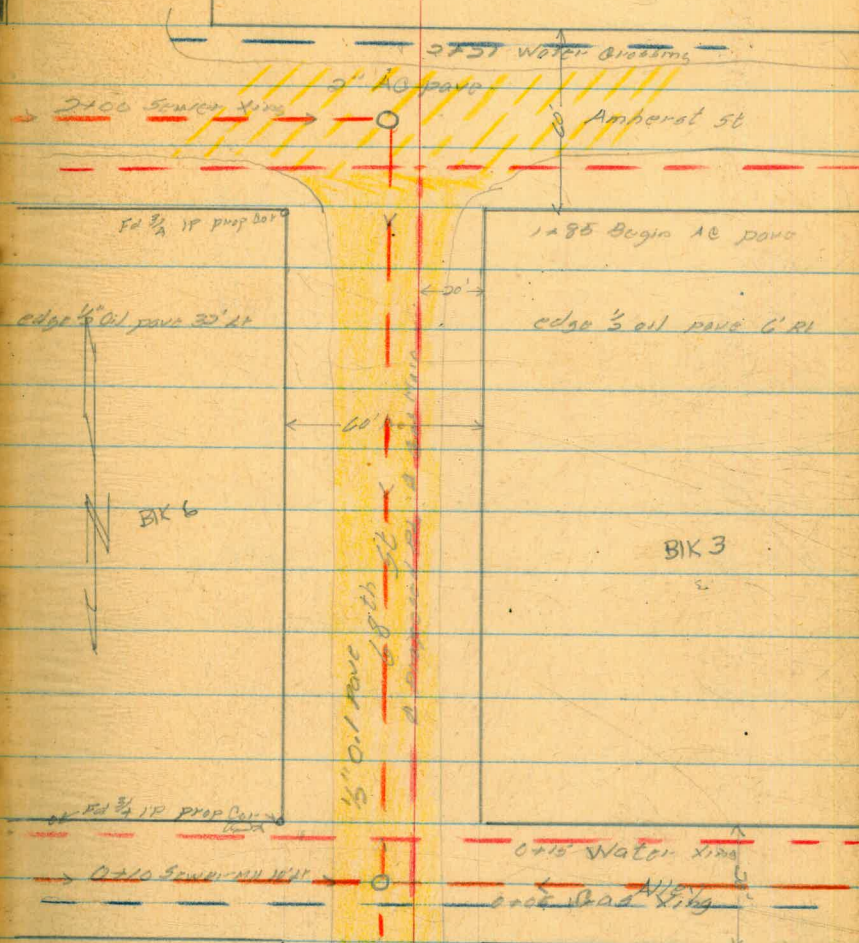 2+51 Water Crossing
2" AC pave
2+00 Sewer Xing
60'
Amherst St
Fd 3/4 IP prop Cor
1+85 Begin AC pave
20'
edge 1/2" Oil pave 32' Lt
edge 1/2 oil pave 6' Rt
60'
N
Blk 6
Blk 3
68th St
1/2" Oil Pave
Fd 3/4 IP prop Cor
0+15 Water Xing
0+10 Sewer
Alley
0+05 Gas Xing